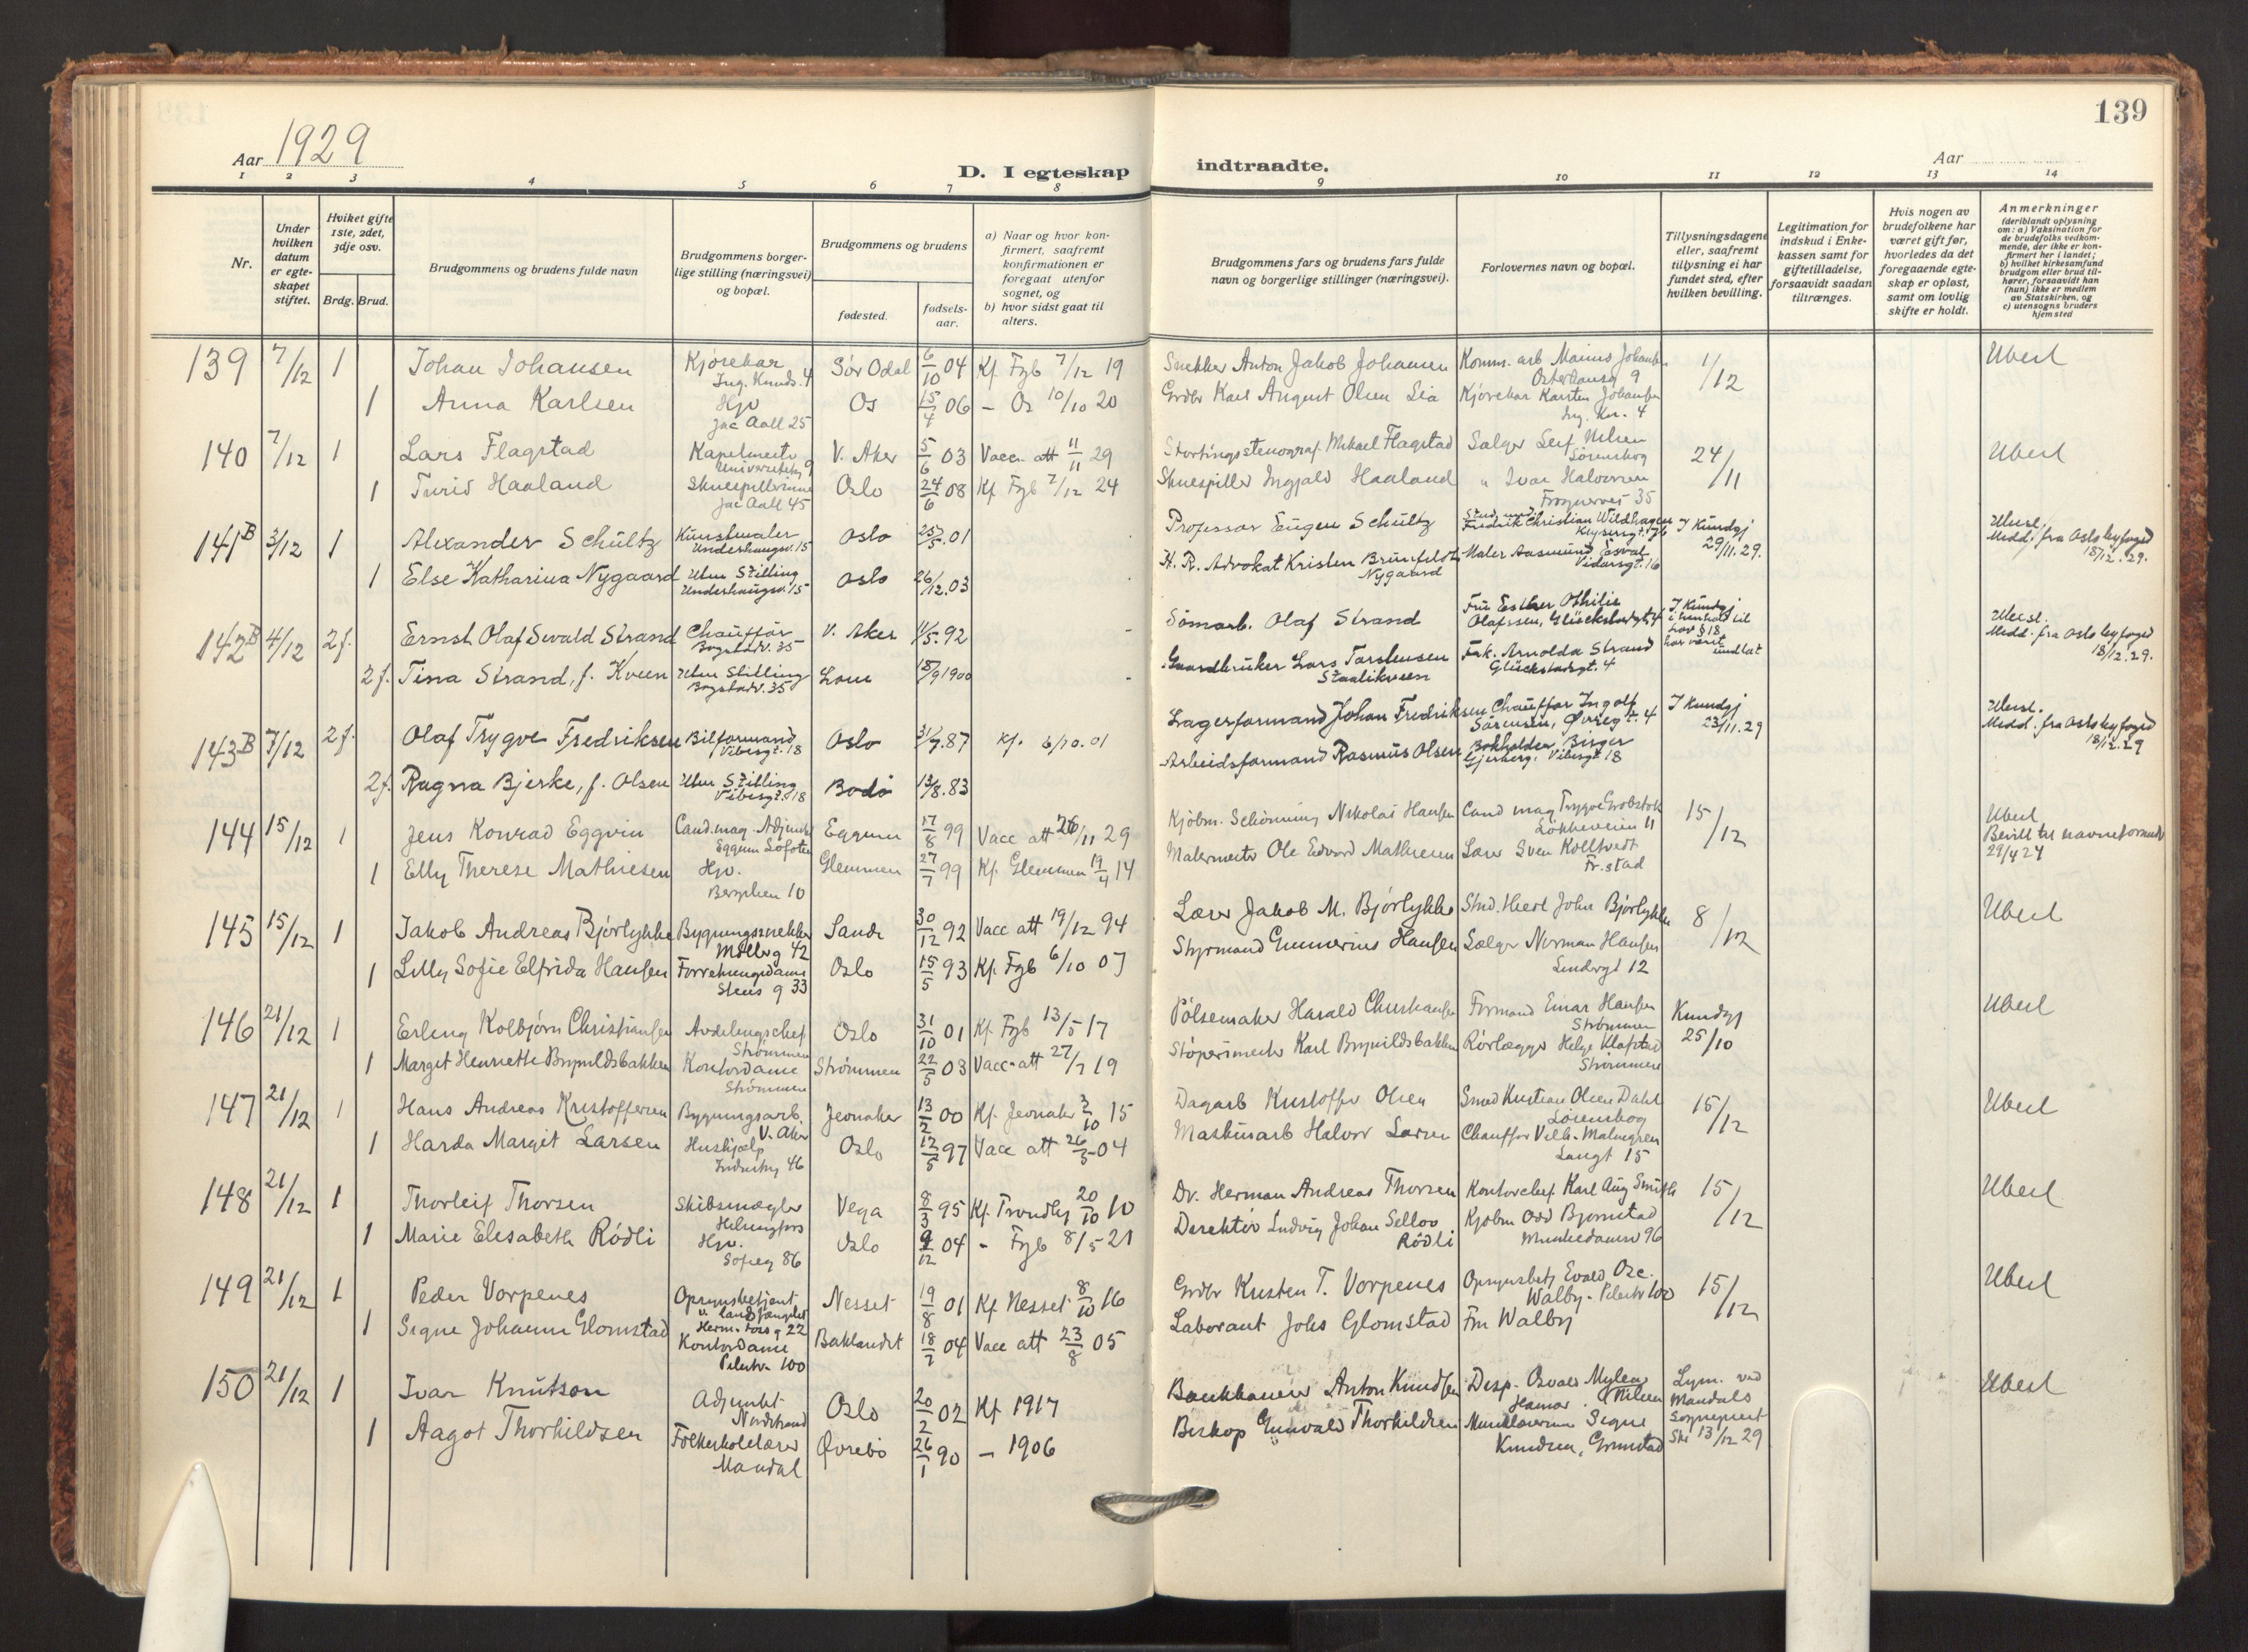 139
Aar 1929
D. I egteskap
indtraadte.
Aar
1 2 3 4 5 6 7 8 9 10 11 12 13 14
Nr.
Under hvilken datum er egteskapet stiftet.
Hviket gifte 1ste, 2det, 3dje osv.
Brdg. Brud.
Brudgommens og brudens fulde navn
Brudgommens borgerlige stilling (næringsvei) og bopæl.
Brudgommens og brudens
fødested.
fødselsaar.
a) Naar og hvor konfirmert, saafremt konfirmationen er foregaat utenfor sognet, og
b) hvor sidst gaat til alters.
Brudgommens fars og brudens fars fulde navn og borgerlige stillinger (næringsvei).
Forlovernes navn og bopæl.
Tillysningsdagene eller, saafremt tillysning ei har fundet sted, efter hvilken bevilling.
Legitimation for indskud i Enkekassen samt for giftetilladelse, forsaavidt saadan tiltrænges.
Hvis nogen av brudefolkene har været gift før, hvorledes da det foregaaende egteskap er opløst, samt om lovlig skifte er holdt.
Anmerkninger
(deriblandt oplysning om: a) Vaksination for de brudefolks vedkommende, der ikke er konfirmert her i landet; b) hvilket kirkesamfund brudgom eller brud tilhører, forsaavidt han (hun) ikke er medlem av Statskirken, og c) utensogns bruders hjemsted
139 7/12 1 Johan Johansen Kjørekar Ing. Knuds. 4 Sør Odal 6/10 04 Kf. Fgb 7/12 19 Snekker Anton Jakob Johansen Komm. arb Marius Johansen 9 1/12 Ubesl
1 Anna Karlsen Hjv Jac Aall 25 Os 15/4 06 – Os 10/10 20 Grdbr Karl August Olsen Lia Kjørekar Karsten Johansen Ing. Kn. 4
140 7/12 1 Lars Flagstad Kapelmester Universitetsg 9 V. Aker 5/6 03 Vacc. att 11/11 29 Stortingsstenograf Mikael Flagstad Sælger Leif Nilsen Lørenskog 24/11 Ubesl
1 Turid Haaland Skuespillerinne Jac Aall 45 Oslo 24/6 08 Kf Fgb 7/12 24 Skuespiller Ingjald Haaland " Ivar Halvorsen Frognervei 35
141B 3/12 1 Alexander Schültz Kunstmaler Underhaugsv. 15 Oslo 25/5.01 Professor Eugen Schültz Stud. med. Fredrik Christian Wildhagen 7b I Kundgj 29/11.29. Ubesl. Medd. fra Oslo byfoged 18/12.29.
1 Else Katharina Nygaard Uten Stilling Underhaugsv. 15 Oslo 26/12.03 H. R. Advokat Kristen Brunfeldt Nygaard Maler Aasmund Esval Vidarsgt. 16
142B 4/12 2 f. Ernst Olaf Svald Strand Chauffør Bogstadv. 35 V. Aker 11/5.92 Sømarb. Olaf Strand Fru Esther Othilie Olafssen, Glückstadsgt. 4 I Kundgj i henhold til lov § 18 har været undlat Ubesl. Medd. fra Oslo byfoged 18/12.29.
2 f. Tina Strand, f. Kveen Uten Stilling Bogstadv. 35 Lom 18/9 1900 Gaardbruker Lars Torstensen Staalikveen Frk. Arnolda Strand Glückstadsgt. 4
143B 7/12 2 f. Olaf Trygve Fredriksen Bilformand Vibesgt. 18 Oslo 31/7.87 Kf. 6/10.01 Lagerformand Johan Fredriksen Chauffør Ingolf Sørensen, Øvregt. 4 I Kundgj 23/11.29 Ubesl. Medd. fra Oslo byfoged 18/12.29
2 f. Ragna Bjerke, f. Olsen Uten Stilling Vibesgt. 18 Bodø 13/8.83 Arbeidsformand Rasmus Olsen Bokholder Birger Gjerberg, Vibesgt 18
144 15/12 1 Jens Konrad Eggvin Cand. mag. Adjunkt Eggum Lofoten Eggum 17/8 99 Vacc att 26/11 29 Kjøbm. Schønning Nikolai Hansen Cand mag Trygve Grobstok Løkkeveien 11 15/12 Ubesl Bevill til navneforandr 29/4 24
1 Elly Therese Mathiesen Hjv. Bergslien 10 Glemmen 27/7 99 Kf. Glemmen 19/4 14 Malermester Ole Edvard Mathiesen Lærer Sven Kolltvedt Fr.stad
145 15/12 1 Jakob Andreas Bjørlykke Bygningssnekker Møllerg 42 Sande 30/12 92 Vacc att 19/12 94 Lærer Jakob M. Bjørlykke Stud. theol John Bjørlykke 8/12 Ubesl
1 Lilly Sofie Elfrida Hansen Forretningsdame Stens g 33 Oslo 15/5 93 Kf. Fgb 6/10 07 Styrmand Gunnerius Hansen Sælger Norman Hansen 12
146 21/12 1 Erling Kolbjørn Christiansen Avdelingschef Strømmen Oslo 31/10 01 Kf. Fgb 13/5 17 Pølsemaker Harald Christiansen Formand Einar Hansen Strømmen Kundgj 25/10 Ubesl
1 Margit Henriette Brynildsbakken Kontordame Strømmen Strømmen 22/5 03 Vacc. att 27/7 19 Støperimester Karl Brynildsbakken Rørlægger Helge Klafstad Strømmen
147 21/12 1 Hans Andreas Kristoffersen Bygningsarb. V. Aker Jevnaker 13/2 00 Kf. Jevnaker 3/10 15 Dagarb Kristoffer Olsen Smed Kristian Olsen Dahl Lørenskog 15/12 Ubesl
1 Harda Margit Larsen Hushjælp Industrig 46 Oslo 12/5 97 Vacc att 26/5 04 Maskinarb Halvor Larsen Chauffør Vilh. Malmgren Langgt 15
148 21/12 1 Thorleif Thorsen Skibsmægler Helsingfors Vega 8/3 95 Kf. Trondhj 20/10 10 Dr. Herman Andreas Thorsen Kontorchef Karl Aug Smith 15/12 Ubesl
1 Marie Elisabeth Rödli Hjv. Sofieg 86 Oslo 9/12 04 – Fgb 8/5 21 Direktør Ludvig Johan Sellov Rödli Kjøbm Odd Bjørnstad Munkedamsv 96
149 21/12 1 Peder Vorpenes Opsynsbetjent v. landsfængslet Herm. Foss g 22 Nesset 19/8 01 Kf Nesset 8/10 16 Grdbr Kristen T. Vorpenes Opsynsbetj Evald Osc. Walby. Pilestr 100 15/12 Ubesl
1 Signe Johanne Glomstad Kontordame Pilestr. 100 Baklandet 18/7 04 Vacc att 23/8 05 Laborant Johs Glomstad Fru Walby
150 21/12 1 Ivar Knutson Adjunkt Nordstrand Oslo 20/2 02 Kf 1917 Bankkasserer Anton Knudsen Disp. Osvald Mylens Nilsen Hamar Lysn. ved Mandals Sogneprest Skr 13/12 29 Ubesl
1 Aagot Thorkildsen Folkeskolelærer Mandal Øvrebø 26/1 90 – 1906 Biskop Gunvald Thorkildsen Musiklærerinne Signe Knudsen, Grimstad